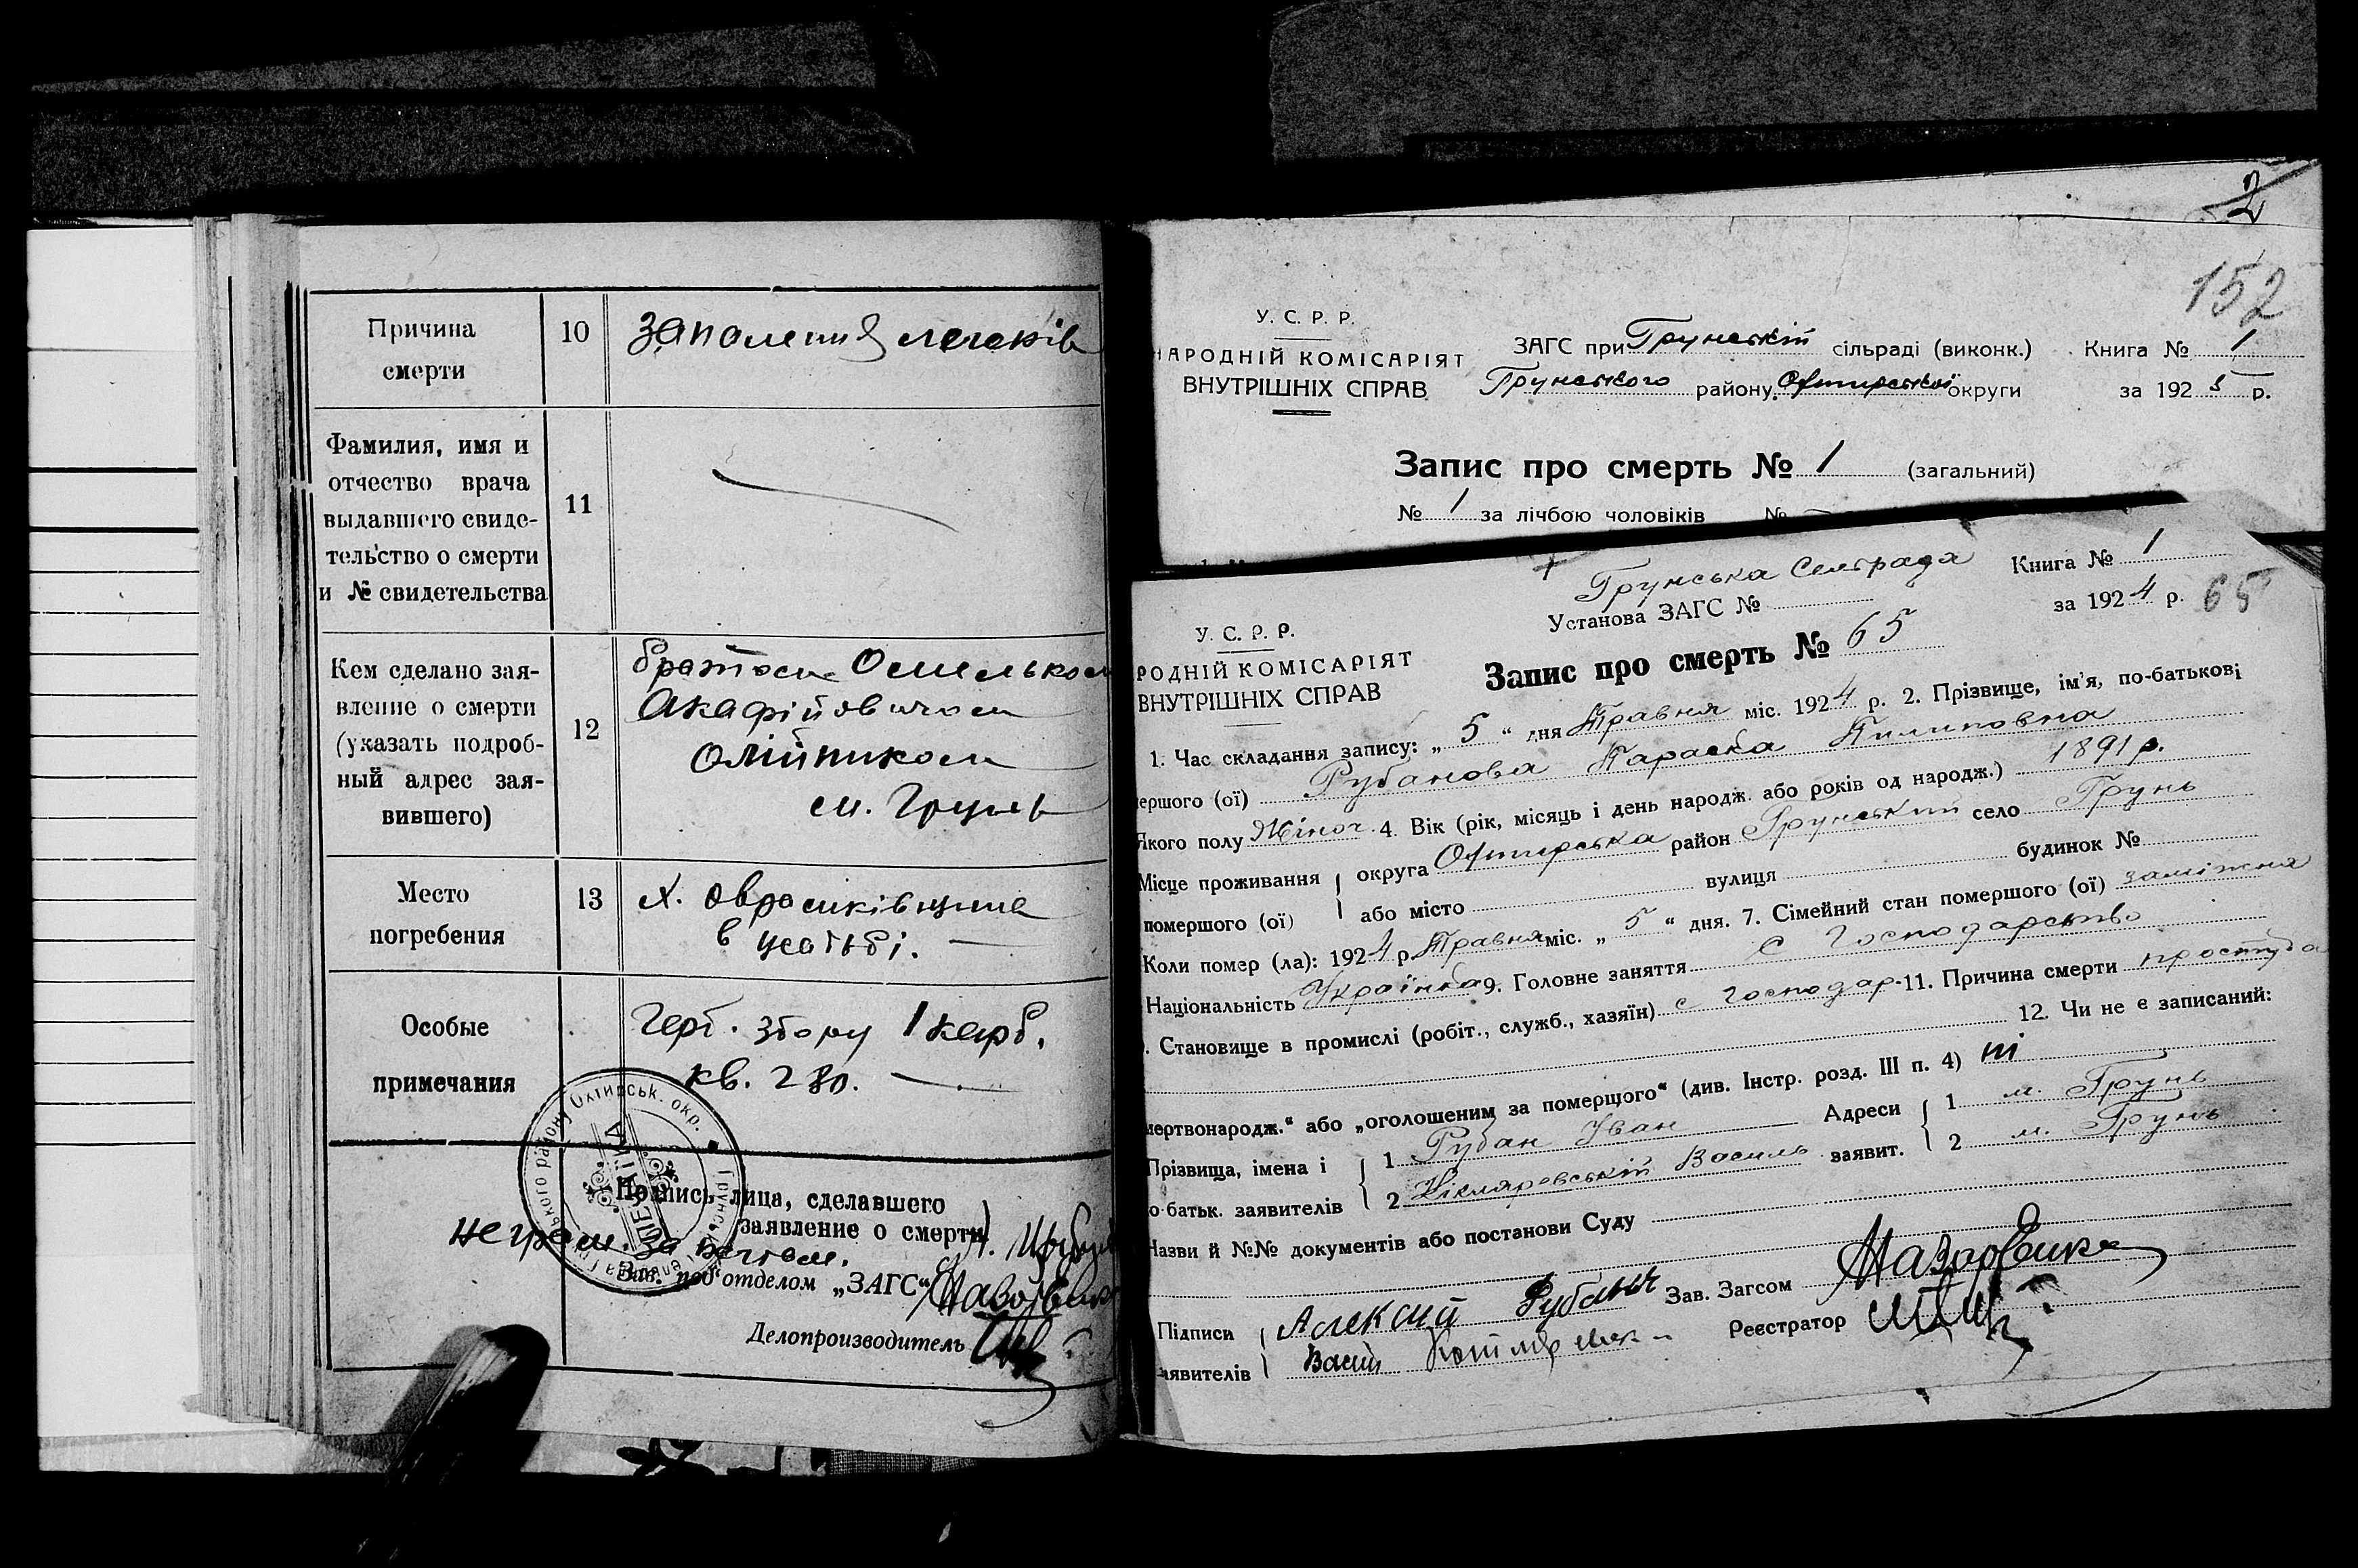 Причина
смерти
10
запаления легенів
Фамилия, имя и
отчество врача
выдавшего свиде-
тельство о смерти
и № свидетельства
11
Кем сделано зая-
вление о смерти
(указать подроб-
ный адрес зая-
вившего)
12
братом Омельком
Акафійовичом
Олійником
м. Грунь
Место
погребения
13
х.
в усадьбі.
Особые
примечания
Герб. збору 1 карб.
кв. 280.
Подпись лица, сделавшего
заявление о смерти
неграм. за
Зав. под'отделом „ЗАГС“
Делопроизводитель
2
152
У. С. Р. Р.
НАРОДНІЙ КОМІСАРІЯТ
ВНУТРІШНІХ СПРАВ
ЗАГС при Грунській сільраді (виконк.)
Грунського району, Охтирської округи
Книга № 1
за 192 р.
Запис про смерть № 1 (загальний)
№ 1 за лічбою чоловіків №
Грунська Сельрада
Установа ЗАГС №
Книга № 1
за 1924 р. 65
У. С. Р. Р.
РОДНІЙ КОМІСАРІЯТ
ВНУТРІШНІХ СПРАВ
Запис про смерть № 65
1. Час складання запису: „ 5 “ дня Травня міс. 1924 р. 2. Прізвище, ім'я, по-батькові
ершого (ої) Рубанова Параска Пилиповна
Якого полу Жіноч. 4. Вік (рік, місяць і день народж. або років од народж.) 1891 р.
Місце проживання округа Охтирська район Грунський село Грунь
помершого (ої) або місто вулиця будинок №
Коли помер (ла): 1924 р. Травня міс. „ 5 “ дня. 7. Сімейний стан помершого (ої) заміжня
Національність Українка 9. Головне заняття С Господарство
. Становище в промислі (робіт., служб., хазяїн) с господар. 11. Причина смерти простуда
12. Чи не є записаний:
мертвонародж.“ або „оголошеним за померщого“ (див. Інстр. розд. III п. 4) ні
Прізвища, імена і 1 Рубан Іван Адреси 1 м. Грунь
о-батьк. заявителів 2 Василь заявит. 2 м. Грунь
Назви й №№ документів або постанови Суду
Підписи Алексий Рубан Зав. Загсом
аявителів Васил Реєстратор